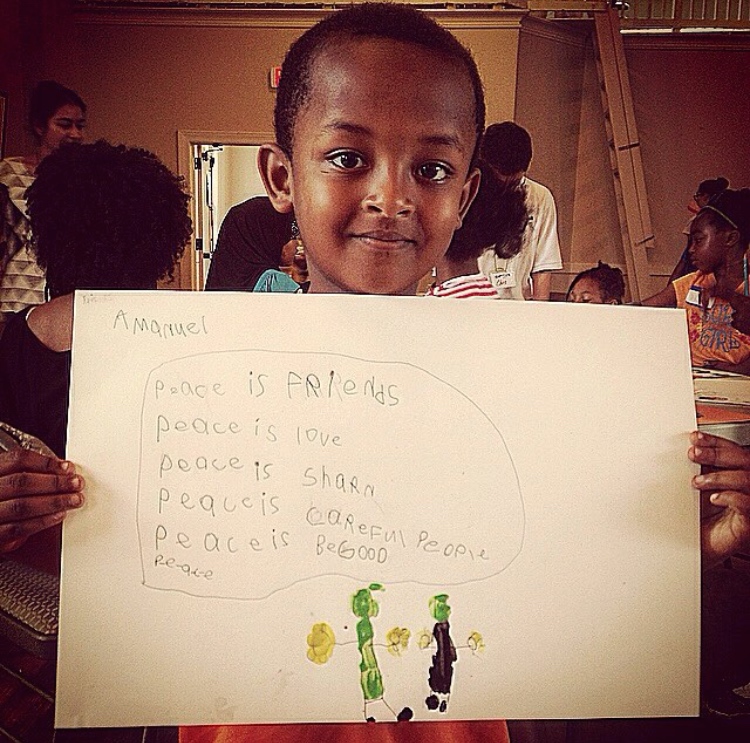 AManuel
peace is FRIends
peace is love
peace is shaRn
peaceis CaReFul People
peaceis BeGOOD
Peace
GIRL